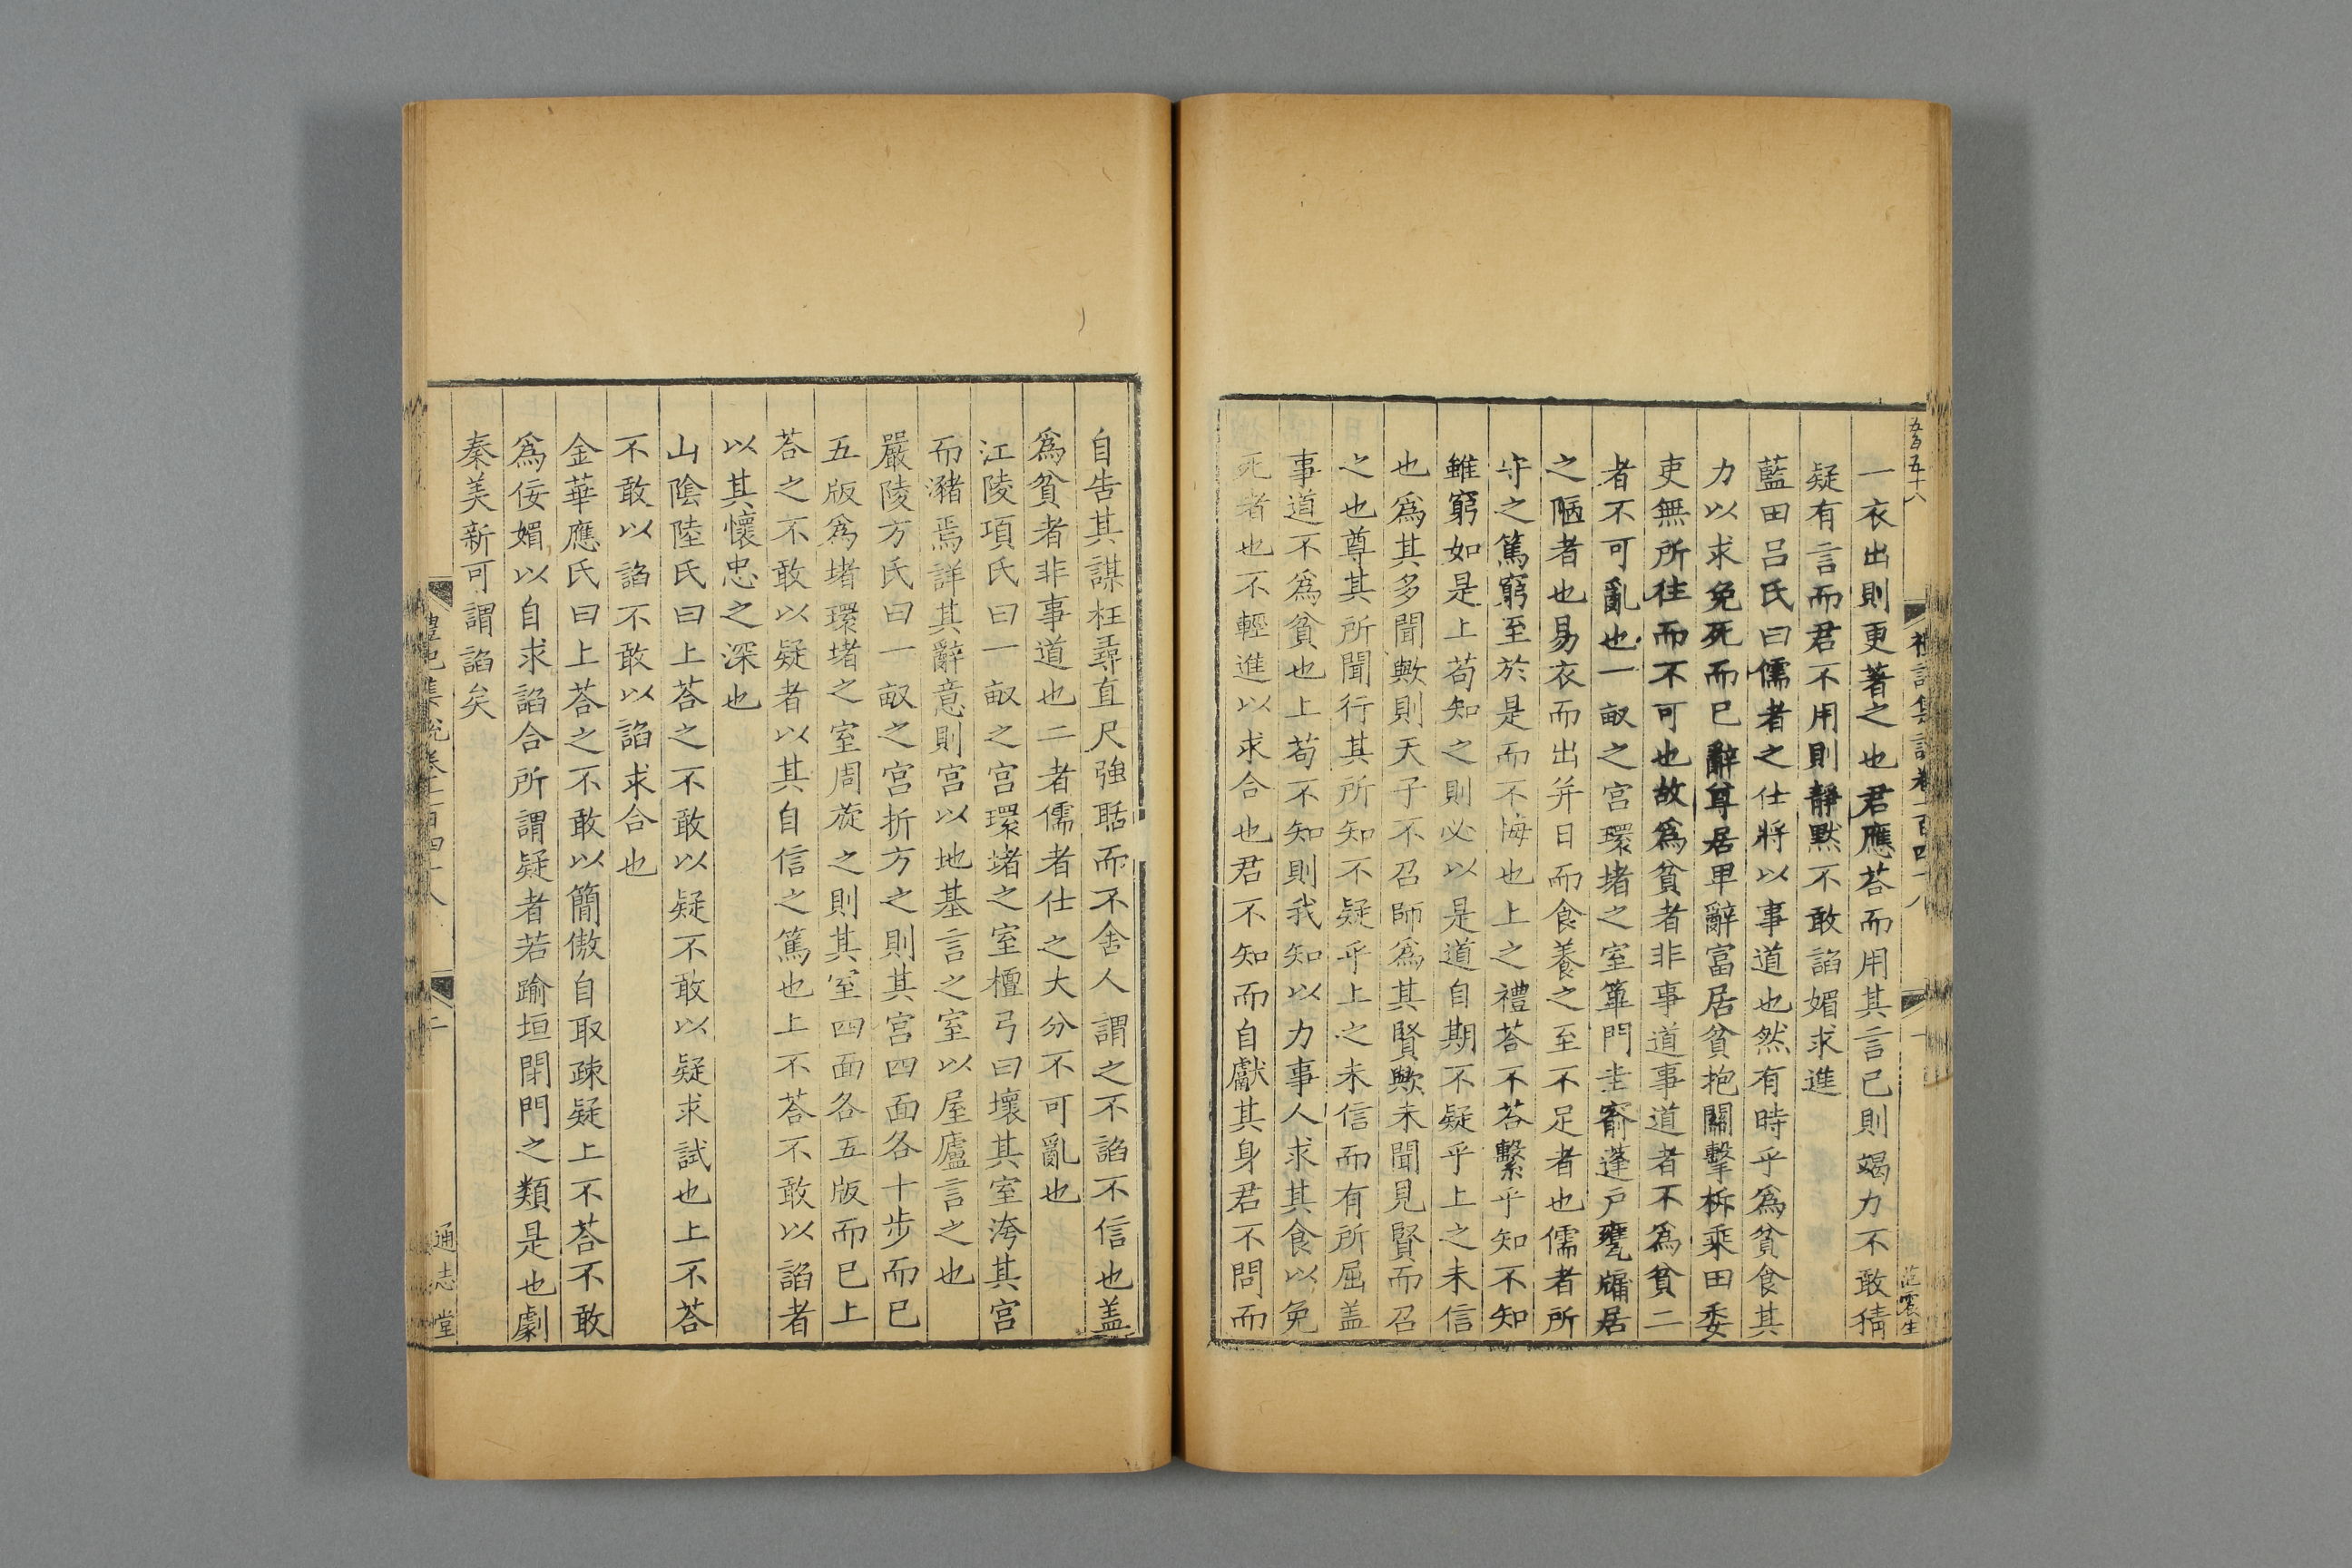 五百五十八
禮記集說卷一百四十八
十
范震生
一衣出則更著之也君應荅而用其言已則竭力不敢猜
疑有言而君不用則靜默不敢諂媚求進
藍田呂氏曰儒者之仕將以事道也然有時乎爲貧食其
力以求免死而已辭尊居卑辭富居貧抱關擊柝乘田委
吏無所往而不可也故爲貧者非事道事道者不爲貧二
者不可亂也一畝之宮環堵之室篳門圭窬蓬戶甕牖居
之陋者也易衣而出并日而食養之至不足者也儒者所
守之篤窮至於是而不悔也上之禮荅不荅繫乎知不知
雖窮如是上苟知之則必以是道自期不疑乎上之未信
也爲其多聞歟則天子不召師爲其賢歟未聞見賢而召
之也尊其所聞行其所知不疑乎上之未信而有所屈盖
事道不爲貧也上苟不知則我知以力事人求其食以免
死者也不輕進以求合也君不知而自獻其身君不問而
自告其謀枉尋直尺強聒而不舍人謂之不諂不信也盖
爲貧者非事道也二者儒者仕之大分不可亂也
江陵項氏曰一畝之宮環堵之室檀弓曰壞其室洿其宮
而瀦焉詳其辭意則宮以地基言之室以屋廬言之也
嚴陵方氏曰一畝之宮折方之則其宮四面各十步而已
五版爲堵環堵之室周旋之則其室四面各五版而已上
荅之不敢以疑者以其自信之篤也上不荅不敢以諂者
以其懷忠之深也
山隂陸氏曰上荅之不敢以疑不敢以疑求試也上不荅
不敢以諂不敢以諂求合也
金華應氏曰上荅之不敢以簡傲自取疎疑上不荅不敢
爲佞媚以自求諂合所謂疑者若踰垣閉門之類是也劇
秦美新可謂諂矣
禮記集說卷一百四十八
二
通志堂